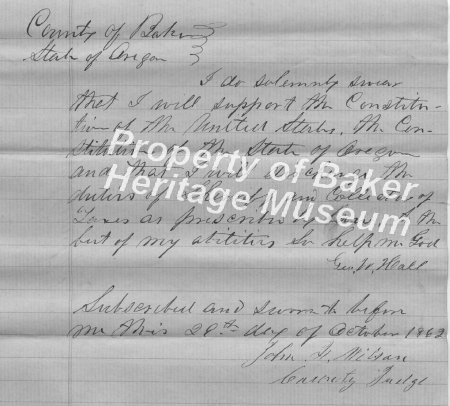 County of Baker
State of Oregon
I do solemnly swear
that I will support the Constitu-
tion of the United States, the Con-
stitution of the State of Oregon
and that I will the
duties of Collector of
Taxes as prescribed by law to the
best of my abilities So help me God
Geo. W. Hall
Subscribed and sworn to before
me this 28th day of October 1862
John Q. Wilson
County Judge
Property of Baker
Heritage Museum